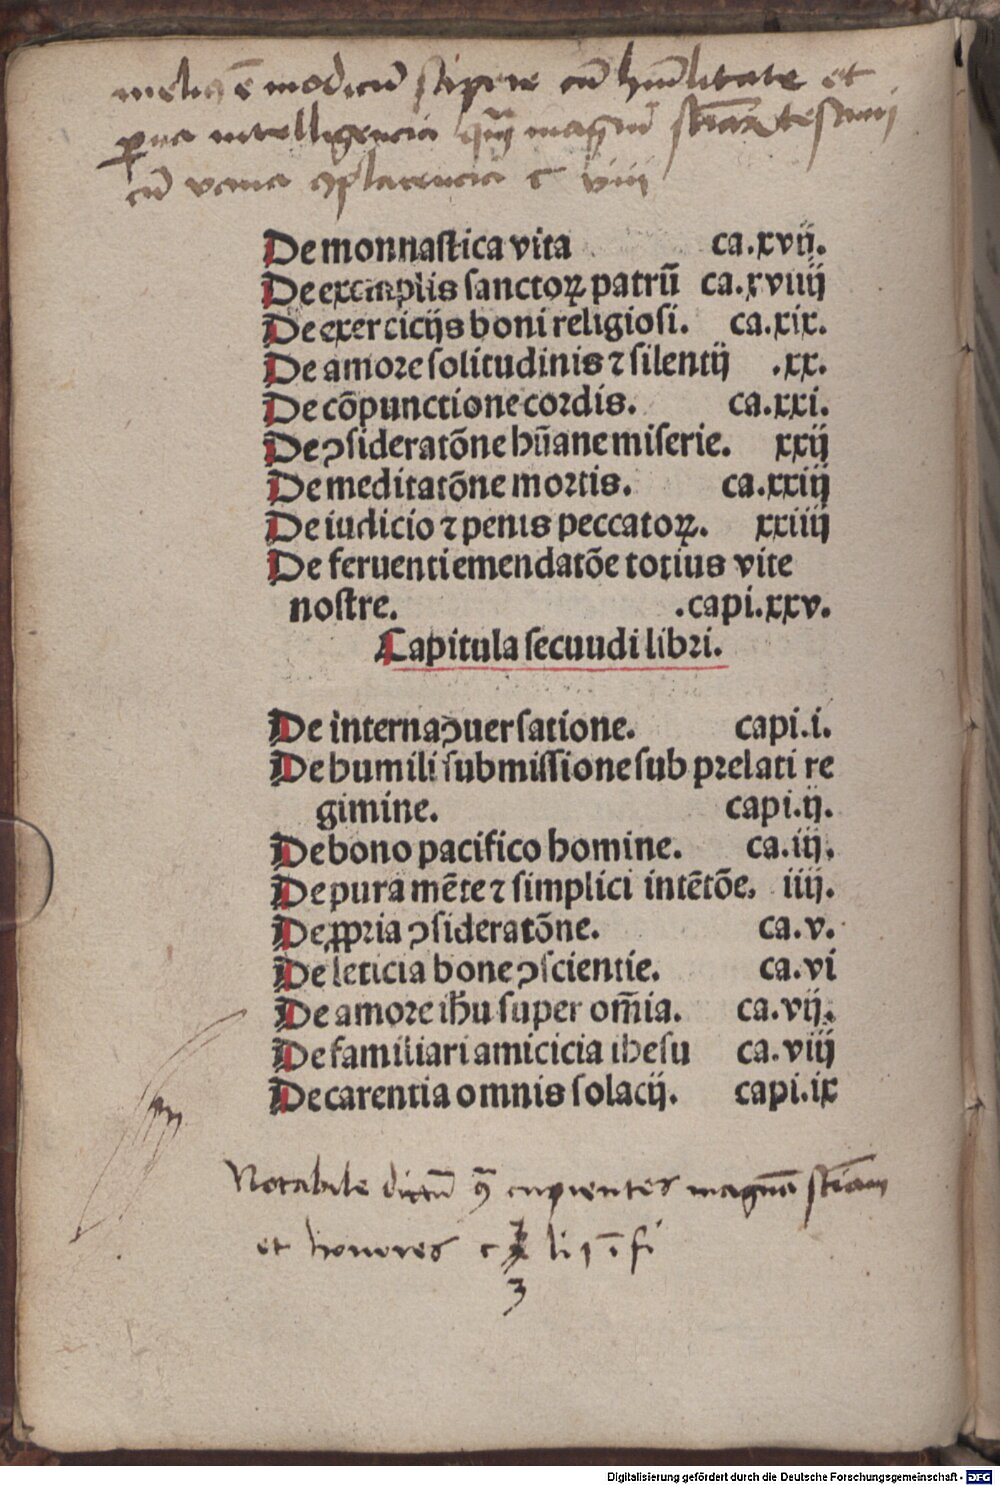 meliꝰ ē modicū sapere cū hūilitate et
ꝑua intelligencia qᷓm magnū sciāꝝ tesauri
cū vana ꝯplacencia c viii
De monnastica vita ca.xvij.
De exemplis sanctoꝝ patrū ca.xviiij
De exercicijs boni religiosi. ca.xix.
De amore solitudinis ⁊ silentij .xx.
De cōpunctione cordis. ca.xxi.
De ↄsideratōne hūane miserie. xxij
De meditatōne mortis. ca.xxiij
De iudicio ⁊ penis peccatoꝝ. xxiiij
De feruenti emendatōe totius vite
nostre. .capi.xxv.
Capitula secuudi libri.
De interna ↄuersatione. capi.i.
De humili submissione sub prelati re
gimine. capi.ij.
De bono pacifico homine. ca.iij.
De pura mēte ⁊ simplici intētōe. iiij.
De ꝓpria ↄsideratōne. ca.v.
De leticia bone ↄscientie. ca.vi
De amore ih̄u super om̄ia. ca.vij.
De familiari amicicia ihesu ca.viij
De carentia omnis solacij. capi.ix
Notabile dictū ꝯᷓ cupientes magnā sciam
et honores c li 1 ī fi
3
Digitalisierung gefördert durch die Deutsche Forschungsgemeinschaft - DFG